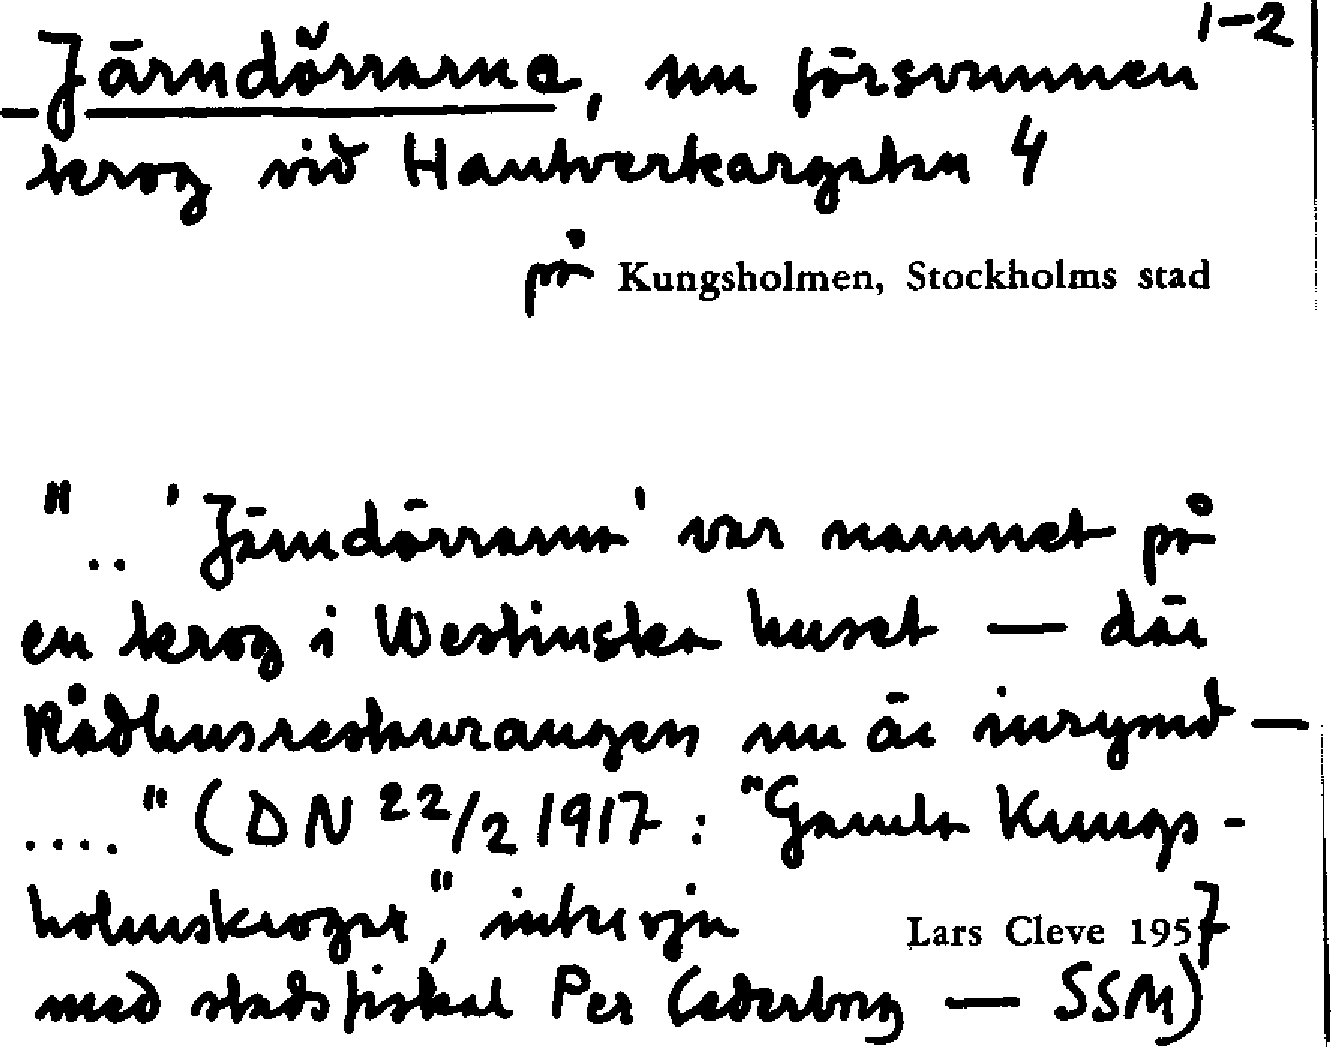 1-2
Järndörrarna, nu försvunnen
krog vid Hantverkargatan 4
på Kungsholmen, Stockholms stad
".. 'Järndörrarna' var namnet på
en krog i Westinska huset — där
Rådhusrestaurangen nu är inrymd —
...." (DN 22/2 1917: "Gamla Kungs-
holmskrogar", intervju
Lars Cleve 1957
med stadsfiskal Per Cederborg — SSM)